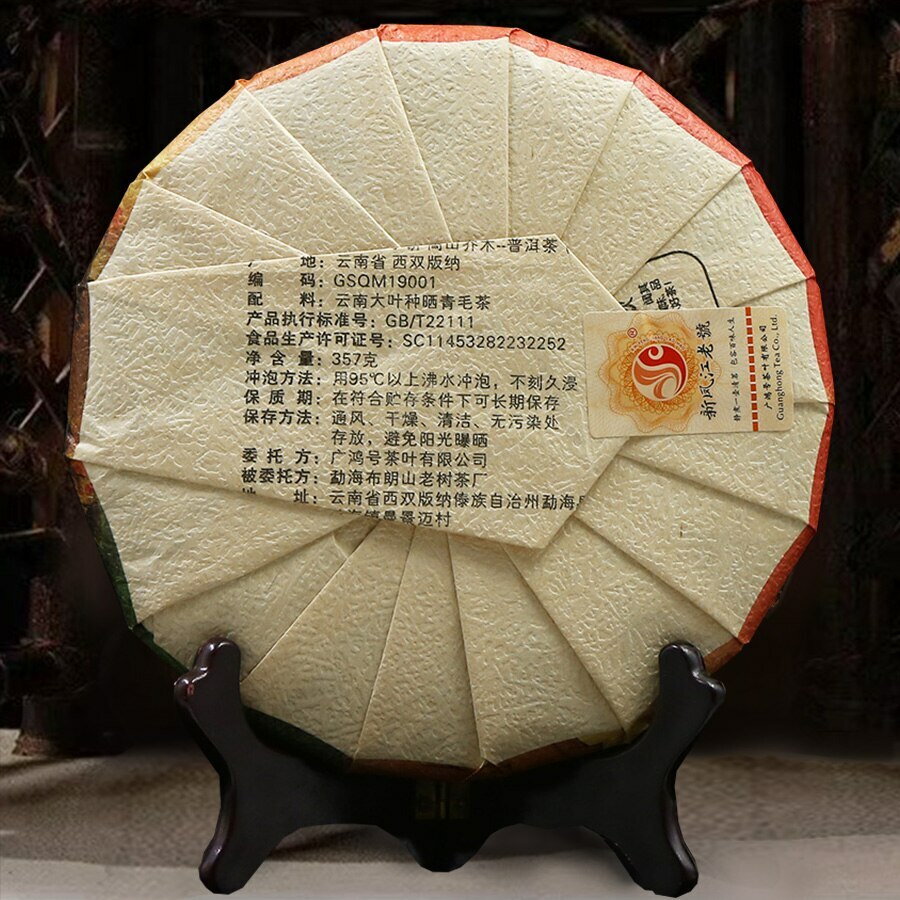 高山乔木--普洱茶
地：云南省 西双版纳
编 码：GSQM19001
配 料：云南大叶种晒青毛茶
产品执行标准号：GB/T22111
食品生产许可证号：SC11453282232252
净 含 量：357克
冲泡方法：用95℃以上沸水冲泡，不刻久浸
保 质 期：在符合贮存条件下可长期保存
保存方法：通风、干燥、清洁、无污染处
存放，避免阳光曝晒
委 托 方：广鸿号茶叶有限公司
被委托方：勐海布朗山老树茶厂
地 址：云南省西双版纳傣族自治州勐海
海镇曼景迈村
新凤江老號
®
静煮一壶清茗 包容百味人生
广鸿号茶叶有限公司
Guanghong Tea Co., Ltd.